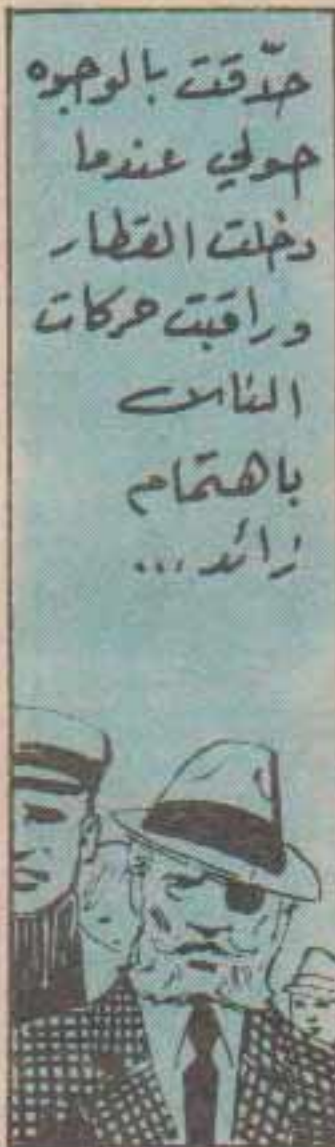 حدّقت بالوجوه
حولي عندما
دخلت القطار
وراقبت حركات
الناس
باهتمام
زائد...